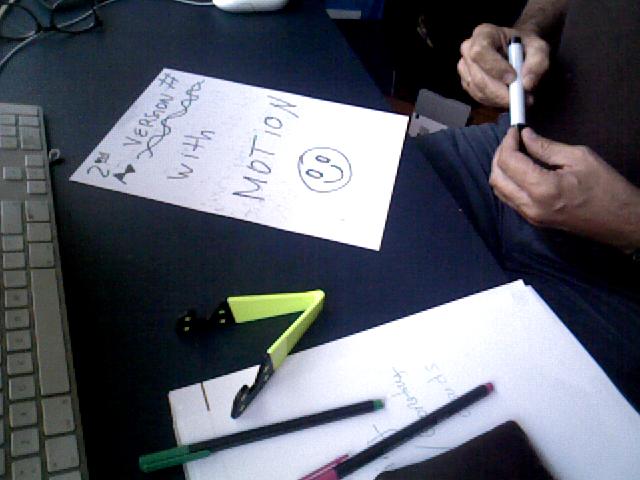 2nd VERSION #
with
MOTION